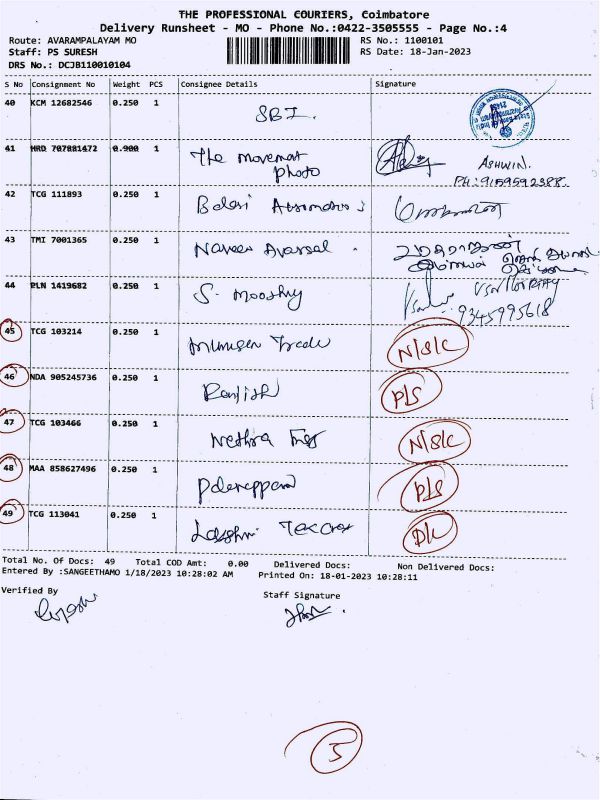 THE PROFESSIONAL COURIERS, Coimbatore
Delivery Runsheet - MO - Phone No.:0422-3505555 - Page No.:4
Route: AVARAMPALAYAM MO
RS No.: 1100101
Staff: PS SURESH
RS Date: 18-Jan-2023
DRS No.: DCJB110010104
S No Consignment No Weight PCS Consignee Details Signature
40 KCM 12682546 0.250 1 SBI.
41 HRD 707881472 0.900 1 The movement photo ASHWIN.
PH: 9159592388.
42 TCG 111893 0.250 1
43 TMI 7001365 0.250 1 Naveen
44 PLN 1419682 0.250 1 S. Moorthy
9345995618
45 TCG 103214 0.250 1 N/S/C
46 NDA 905245736 0.250 1 Ranjith P/S
47 TCG 103466 0.250 1 Nethra N/S/C
48 MAA 858627496 0.250 1 P/S
49 TCG 113041 0.250 1 Lakshmi D/L
Total No. Of Docs: 49 Total COD Amt: 0.00 Delivered Docs: Non Delivered Docs:
Entered By :SANGEETHAMO 1/18/2023 10:28:02 AM Printed On: 18-01-2023 10:28:11
Verified By
Staff Signature
5